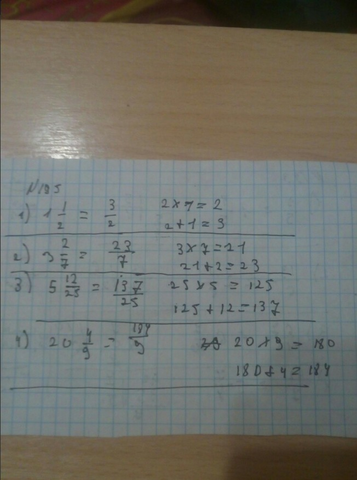 N195
1) 1 1/2 = 3/2 2×1=2
2+1=3
2) 3 2/7 = 23/7 3×7=21
21+2=23
3) 5 12/25 = 137/25 25×5=125
125+12=137
4) 20 4/9 = 184/9 20×9=180
180+4=184